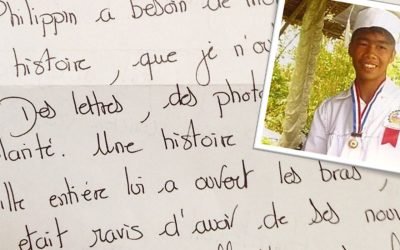 Philippin a besoin de
histoire, que je n'ou
Des lettres, des photo
larité. Une histoire
ille entière lui a ouvert les bras,
était ravis d'avoir de ses nouv